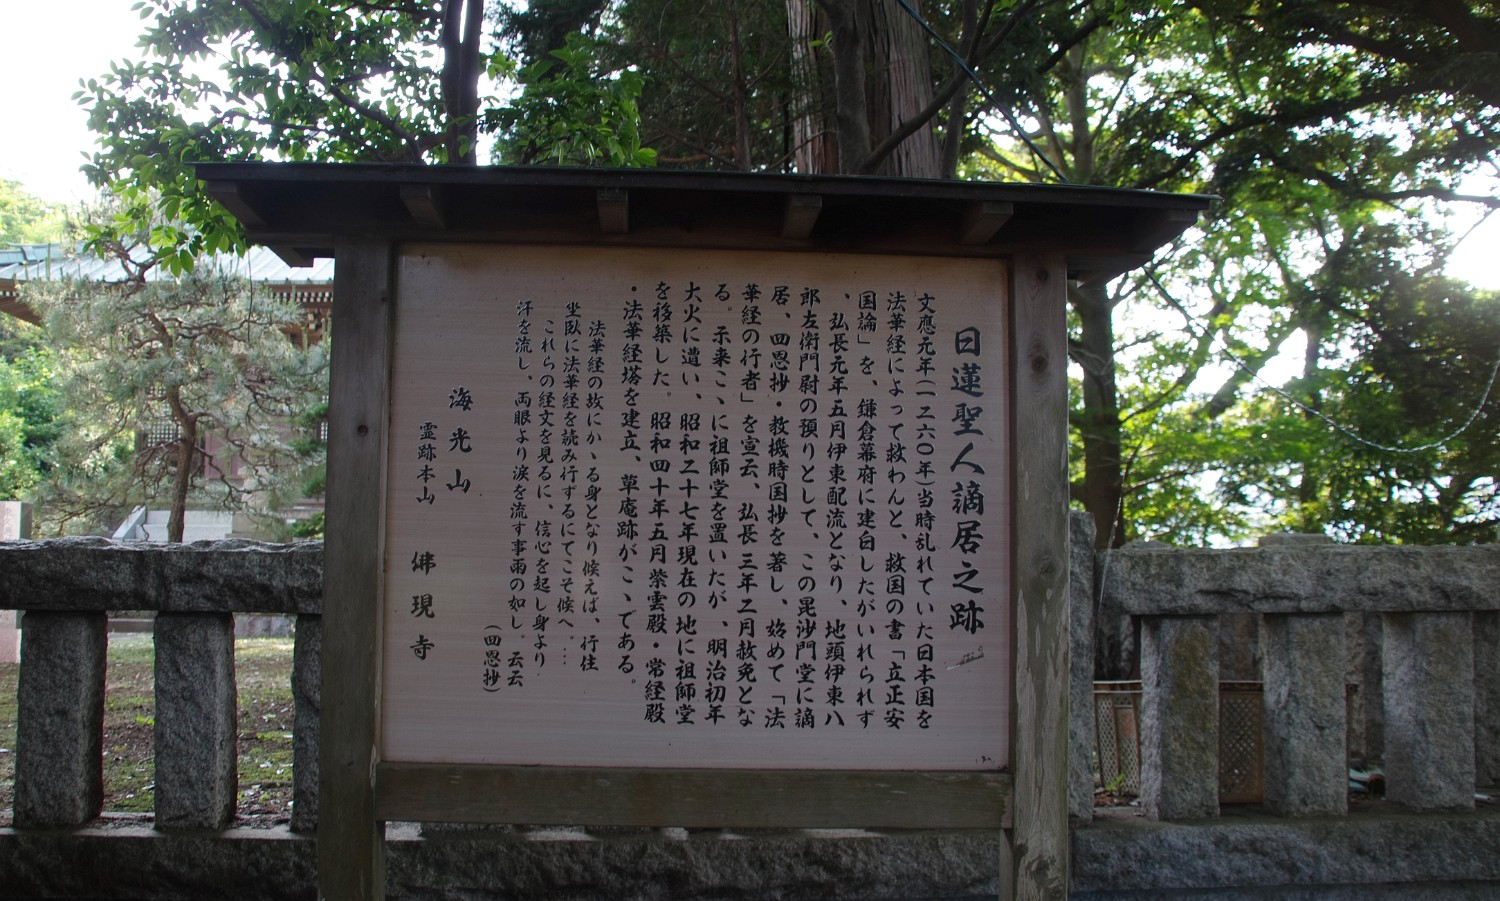 日蓮聖人謫居之跡
文應元年(一二六〇年)当時乱れていた日本国を
法華経によって救わんと、救国の書「立正安
国論」を、鎌倉幕府に建白したがいれられず
、弘長元年五月伊東配流となり、地頭伊東八
郎左衛門尉の預りとして、この毘沙門堂に謫
居、四恩抄・教機時国抄を著し、始めて「法
華経の行者」を宣云、弘長三年二月赦免とな
る。示来こゝに祖師堂を置いたが、明治初年
大火に遭い、昭和二十七年現在の地に祖師堂
を移築した。昭和四十年五月紫雲殿・常経殿
・法華経塔を建立、草庵跡がこゝである。
法華経の故にかゝる身となり候えば、行住
坐臥に法華経を読み行ずるにてこそ候へ。…
これらの経文を見るに、信心を起し身より
汗を流し、両眼より涙を流す事雨の如し。云云
(四恩抄)
海光山
霊跡本山 佛現寺